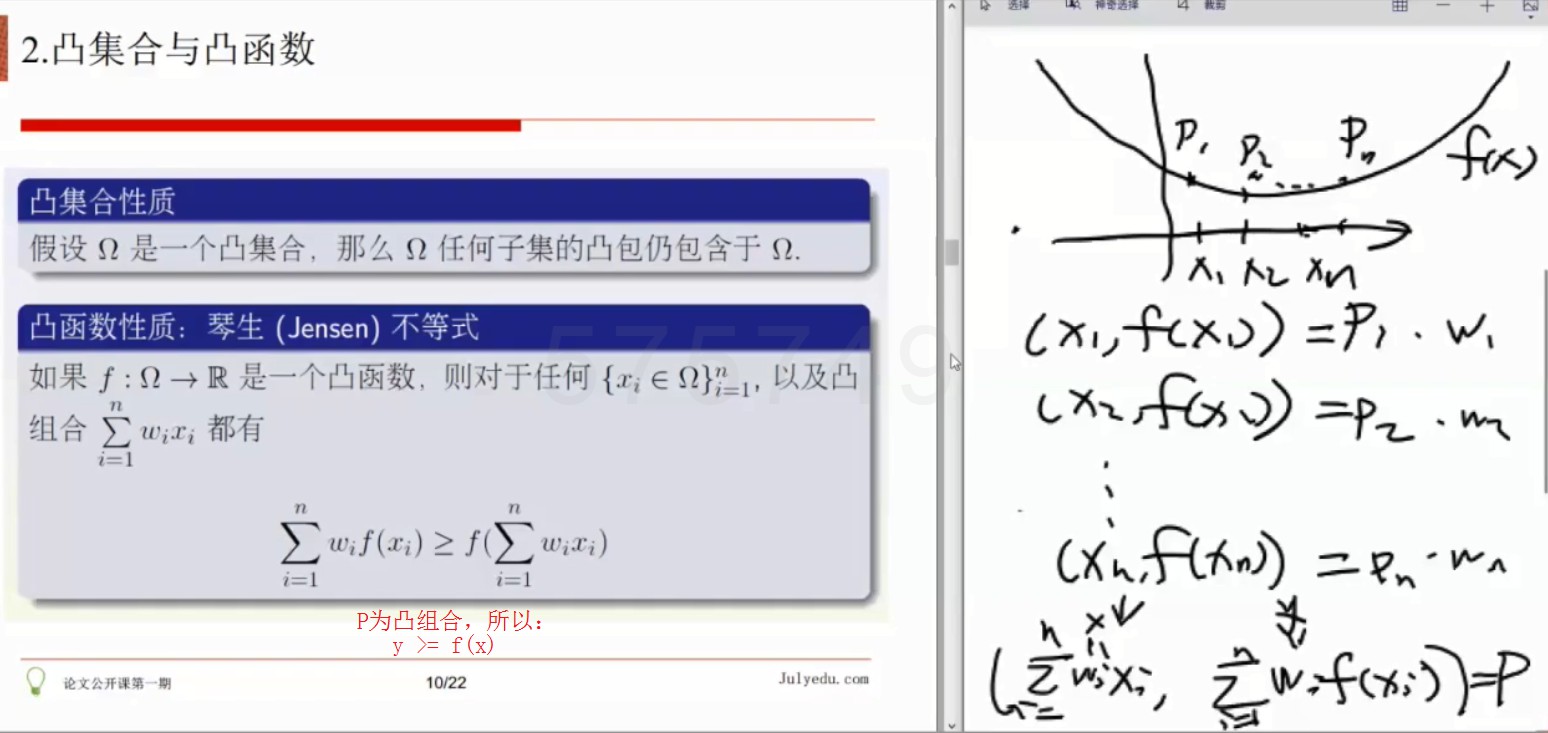 2.凸集合与凸函数
凸集合性质
假设 Ω 是一个凸集合，那么 Ω 任何子集的凸包仍包含于 Ω.
凸函数性质：琴生 (Jensen) 不等式
如果 f : Ω → ℝ 是一个凸函数，则对于任何 {x_i ∈ Ω}_{i=1}^n, 以及凸
组合 \sum_{i=1}^{n} w_i x_i 都有
\sum_{i=1}^{n} w_i f(x_i) ≥ f(\sum_{i=1}^{n} w_i x_i)
P为凸组合，所以：
y >= f(x)
论文公开课第一期
10/22
Julyedu.com
575749
选择 神奇选择 裁剪
P_1 P_2 ... P_n f(x)
x_1 x_2 x_n
(x_1, f(x_1)) = P_1 · w_1
(x_2, f(x_2)) = P_2 · w_2
⋮
(x_n, f(x_n)) = P_n · w_n
x
(\sum_{i=}^{n} w_i x_i, \sum_{i=1}^{n} w_i f(x_i)) = P